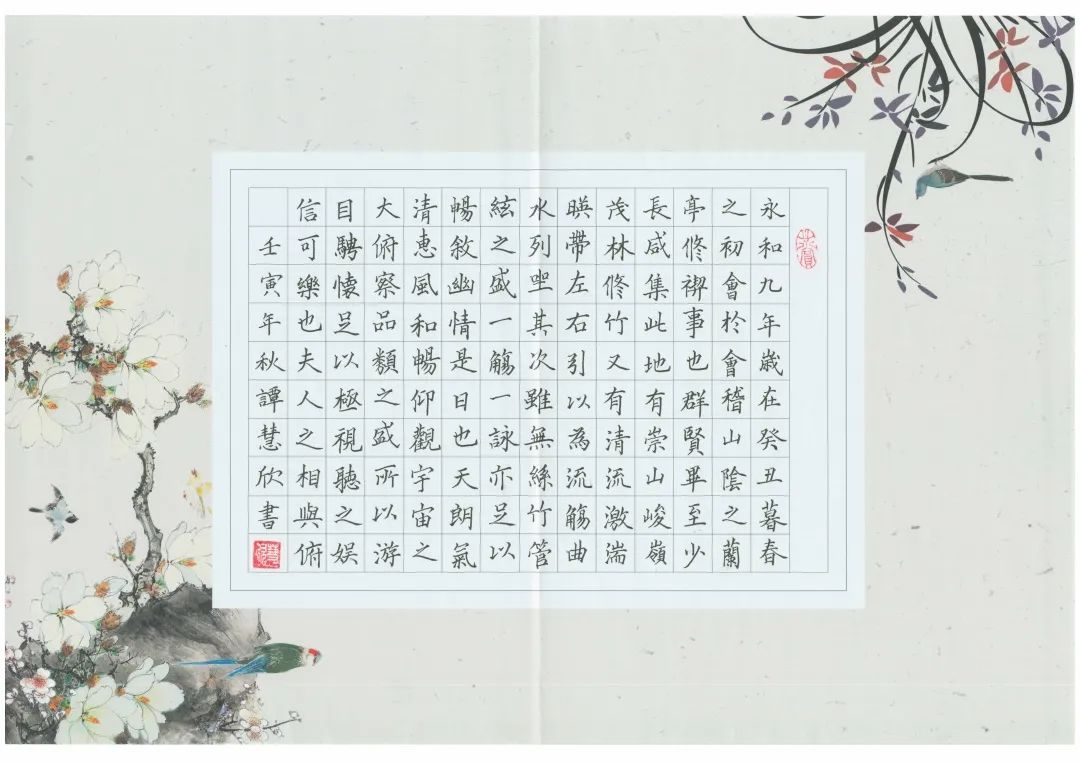 永和九年歲在癸丑暮春
之初會於會稽山陰之蘭
亭修禊事也群賢畢至少
長咸集此地有崇山峻嶺
茂林修竹又有清流激湍
暎帶左右引以為流觴曲
水列坐其次雖無絲竹管
絃之盛一觴一詠亦足以
暢敘幽情是日也天朗氣
清惠風和暢仰觀宇宙之
大俯察品類之盛所以游
目騁懷足以極視聽之娛
信可樂也夫人之相與俯
壬寅年秋譚慧欣書